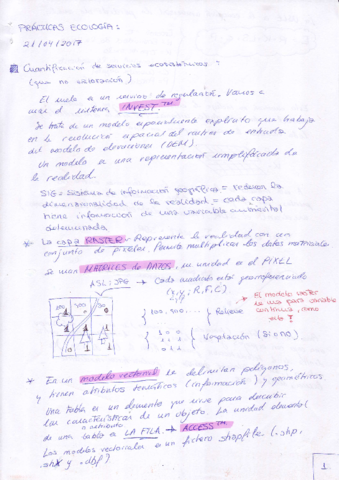 PRÁCTICAS ECOLOGÍA:
21/04/2017
Cuantificación de servicios ecosistémicos:
(que no valoración)
El suelo es un servicio de regulación. Vamos a
usar el sistema, INVEST.™
Se trata de un modelo espacialmente explícito que trabaja
en la resolución espacial del ráster de entrada
del modelo de elevaciones (DEM).
Un modelo es una representación simplificada de
la realidad.
SIG = Sistema de información geográfica = 
dimensionalidad de la realidad = cada capa
tiene información de una variable ambiental
determinada
* La capa RASTER: Representa la realidad con un
conjunto de píxeles. Permite multiplicar los datos matriciales
Se usan MATRICES de DATOS, su unidad es el PIXEL
ASCII: JPG → Cada cuadrado está georreferenciado
(x, y; R, F, C)
100, 500... Relieve
1 0 0
1 1 Vegetación (Si o NO)
* El modelo raster
se usa para variable
continua, como
esta!
* En un modelo vectorial se delimitan polígonos,
y tienen atributos temáticos (información) y geométricos
Una tabla es un elemento que sirve para describir
las características de un objeto. La unidad elemental
o atributo
de una tabla es LA FILA. → ACCESS™
Los modelos vectoriales son fichero shapefile. (.shp,
.shx y .dbf)
1